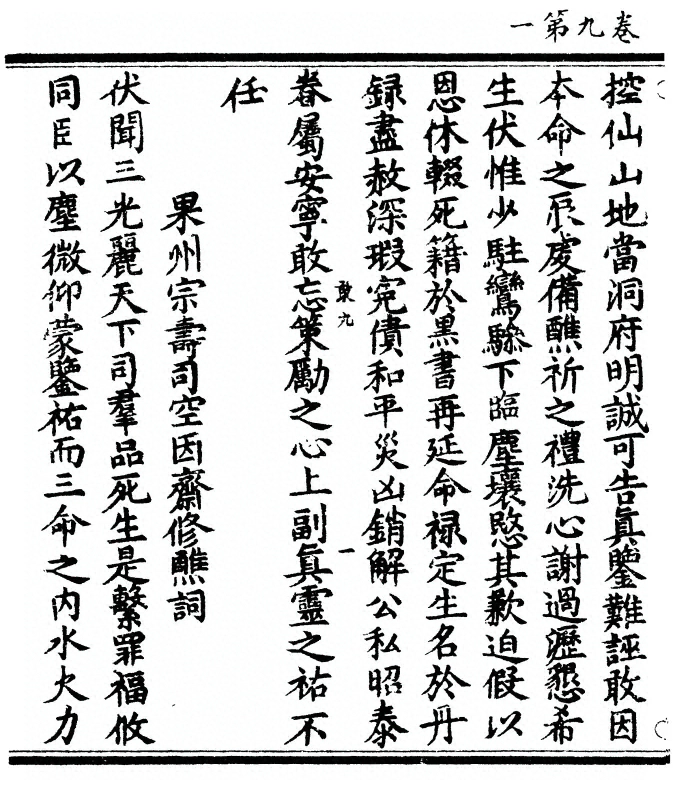 卷九第一
控仙山地當洞府明誠可告眞鑒難誣敢因
本命之辰虔備醮祈之禮洗心謝過瀝懇希
生伏惟少駐鸞驂下臨塵壤愍其歎迫假以
恩休輟死籍於黑書再延命禄定生名於丹
録盡赦深瑕寃債和平災凶銷解公私昭泰
敢九 一
眷屬安寧敢忘策勵之心上副眞靈之祐不
任
果州宗壽司空因齋修醮詞
伏聞三光麗天下司羣品死生是繫罪福攸
同臣以塵微仰蒙鑒祐而三命之内水火力